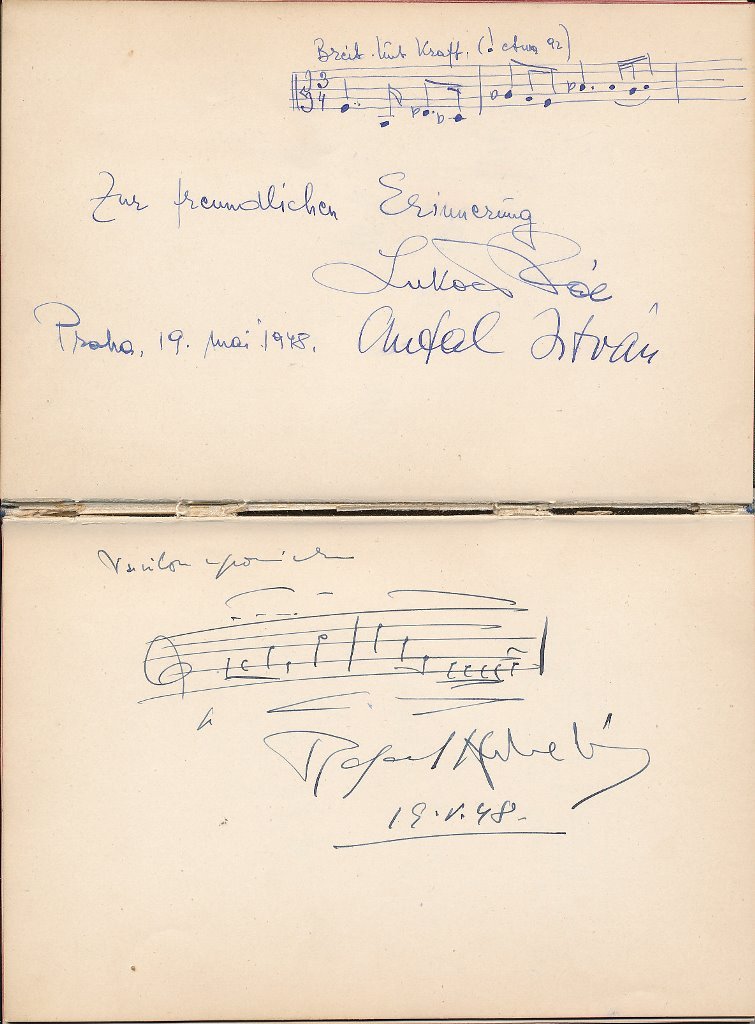 Breit. Mit Kraft. (♩ etwa 92)
3
4
Zur freundlichen Erinnerung
Lukács
Praha, 19. mai 1948. Antal István
Rafael Kubelík
19.V.48.